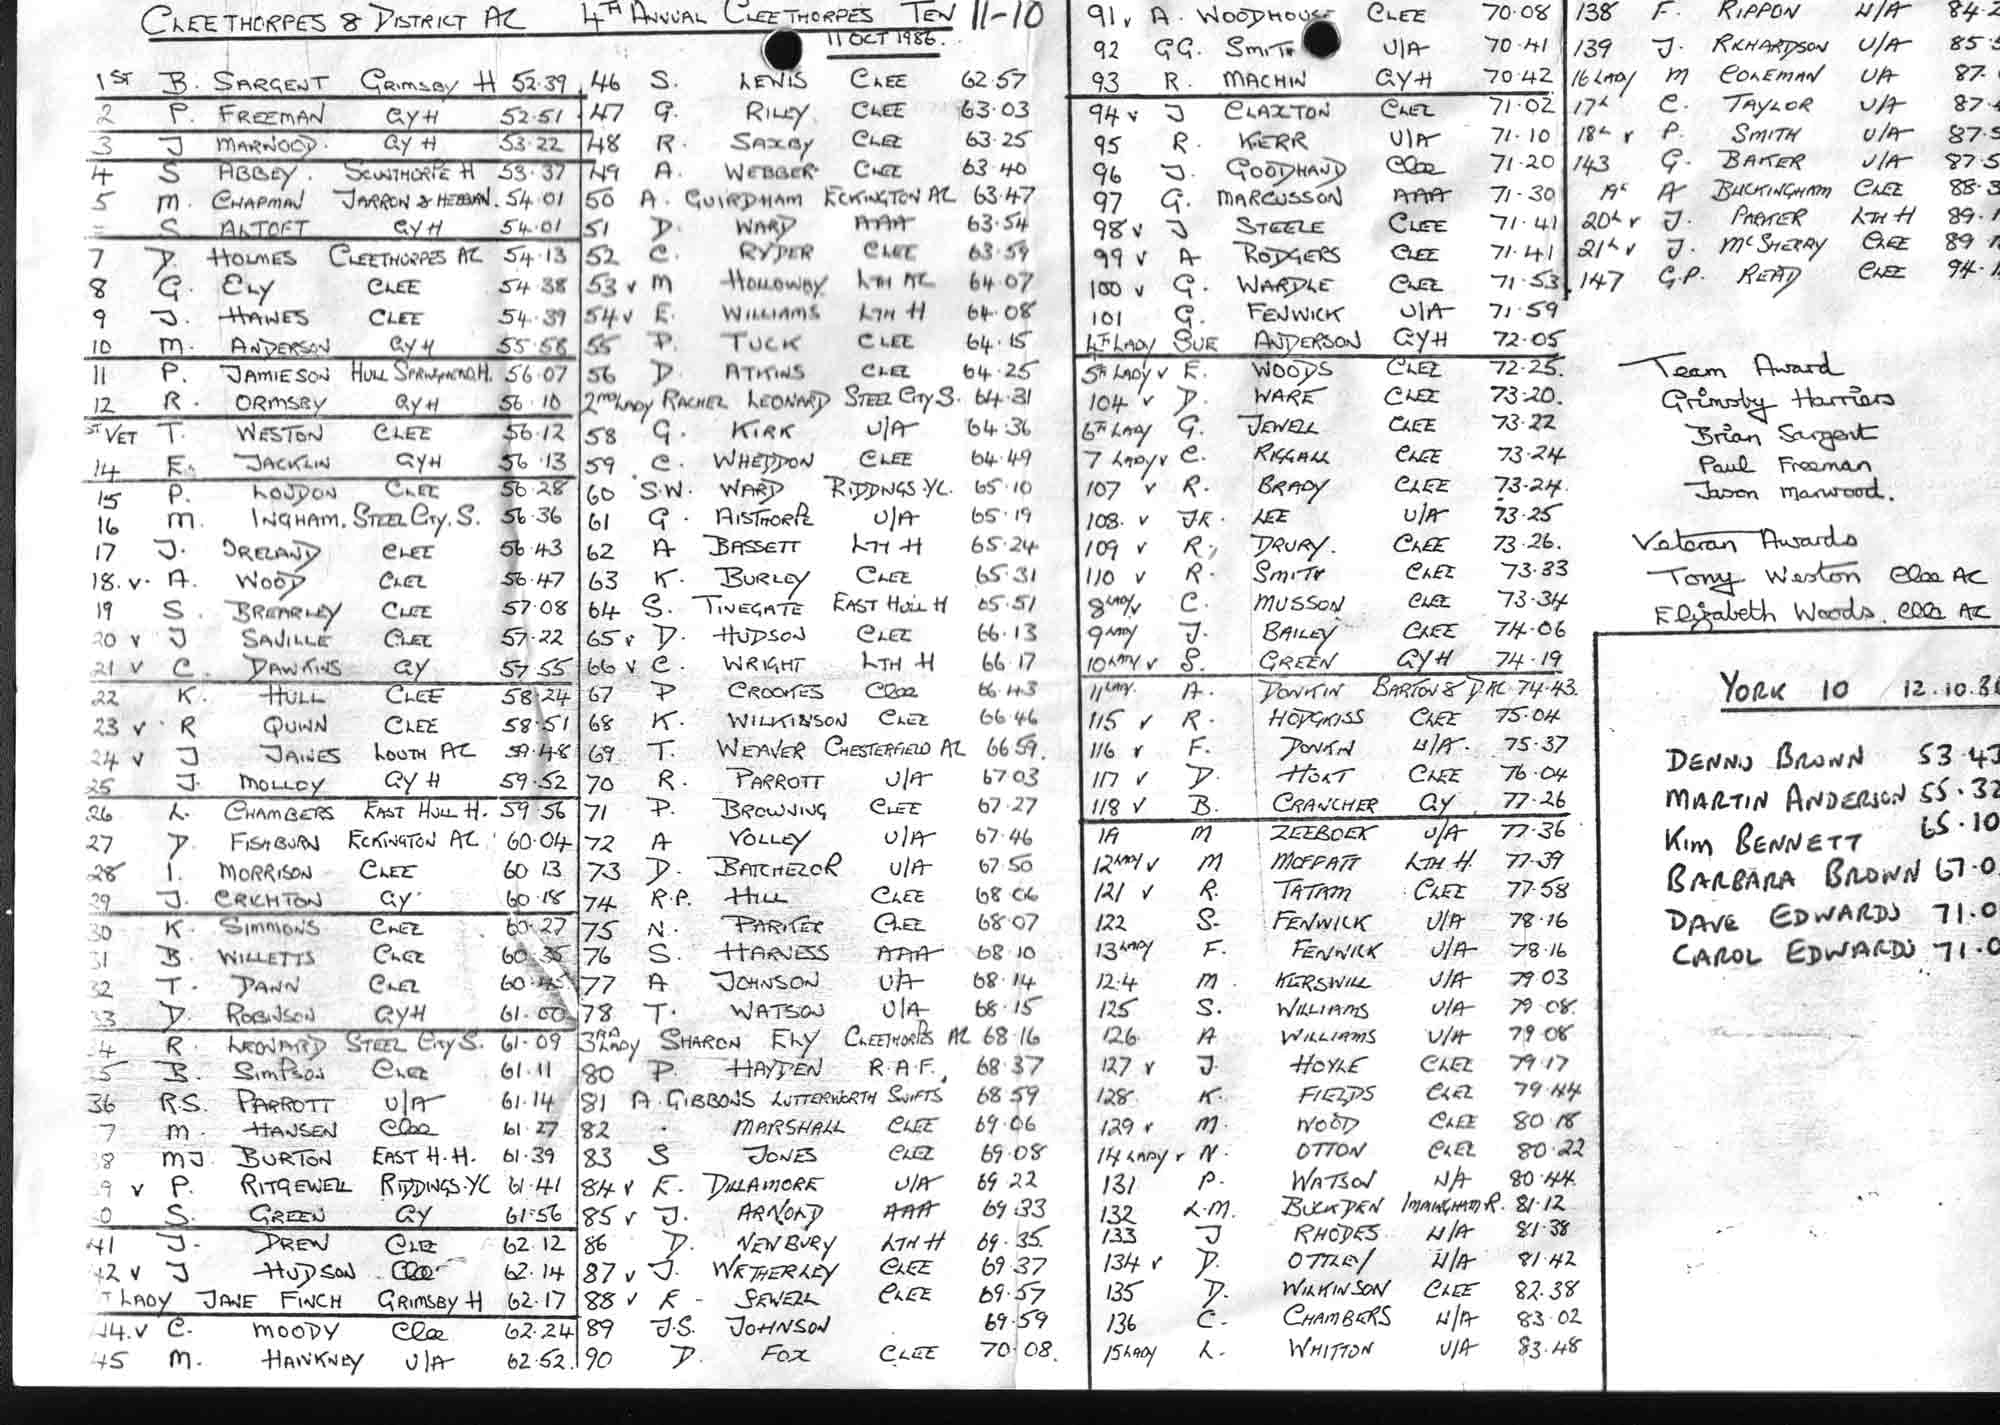 CLEETHORPES & DISTRICT AC 4TH ANNUAL CLEETHORPES TEN 11-10
11 OCT 1986.
1ST B. SARGENT GRIMSBY H 52.39
2 P. FREEMAN GYH 52.51
3 J MARWOOD. GYH 53.22
4 S ABBEY. SCUNTHORPE H 53.37
5 M. CHAPMAN JARROW & HEBBAN. 54.01
= S. ALTOFT GYH 54.01
7 D. HOLMES CLEETHORPES AC 54.13
8 G. ELY CLEE 54.38
9 J. HAWES CLEE 54.39
10 M. ANDERSON GYH 55.58
11 P. JAMIESON HULL SPRINGHEAD H. 56.07
12 R. ORMSBY GYH 56.10
ST VET T. WESTON CLEE 56.12
14 E. JACKLIN GYH 56.13
15 P. LOUDON CLEE 56.28
16 M. INGHAM. STEEL CITY. S. 56.36
17 J. IRELAND CLEE 56.43
18. v. A. WOOD CLEE 56.47
19 S. BREARLEY CLEE 57.08
20 v J SAVILLE CLEE 57.22
21 v C. DAWKINS GY 57.55
22 K. HULL CLEE 58.24
23 v R QUINN CLEE 58.51
24 v J JAINES LOUTH AC 59.48
25 J. MOLLOY GYH 59.52
26 L. CHAMBERS EAST HULL H. 59.56
27 D. FISHBURN ECKINGTON AC 60.04
28 I. MORRISON CLEE 60 13
29 J. CRICHTON GY 60.18
30 K. SIMMONS CLEE 60.27
31 B. WILLETTS CLEE 60.35
32 T. DANN CLEE 60.45
33 D. ROBINSON GYH 61.00
34 R. LEONARD STEEL CITY S. 61.09
5 B. SIMPSON CLEE 61.11
36 R.S. PARROTT U/A 61.14
7 M. HANSEN Clee 61.27
38 MJ. BURTON EAST H.H. 61.39
9 v P. RITGEWELL RIDDINGS.YC 61.41
0 S. GREEN GY 61.56
41 J. DREW CLEE 62.12
42 v J HUDSON Clee 62.14
T LADY JANE FINCH GRIMSBY H 62.17
44.v C. MOODY Clee 62.24
45 M. HAWKNEY U/A 62.52.
46 S. LEWIS CLEE 62.57
47 G. RILEY CLEE 63.03
48 R. SAXBY CLEE 63.25
49 A. WEBBER CLEE 63.40
50 A. GUIRDHAM ECKINGTON AC 63.47
51 D. WARD AAA 63.54
52 C. RYDER CLEE 63.59
53 v M HOLLOWBY LTH AC 64.07
54 v E. WILLIAMS LTH H 64.08
55 P. TUCK CLEE 64.15
56 D. ATKINS CLEE 64.25
2ND LADY RACHEL LEONARD STEEL CITY S. 64.31
58 G. KIRK U/A 64.36
59 C. WHEDDON CLEE 64.49
60 S.W. WARD RIDDINGS.YC. 65.10
61 G. AISTHORPE U/A 65.19
62 A BASSETT LTH H 65.24
63 K. BURLEY CLEE 65.31
64 S. TINEGATE EAST HULL H 65.51
65 v D. HUDSON CLEE 66.13
66 v C. WRIGHT LTH H 66.17
67 P CROOKES Clee 66.43
68 K. WILKINSON CLEE 66.46
69 T. WEAVER CHESTERFIELD AC 66 59.
70 R. PARROTT U/A 67 03
71 P. BROWNING CLEE 67.27
72 A VOLLEY U/A 67.46
73 D. BATCHELOR U/A 67.50
74 R.P. HILL CLEE 68 06
75 N. PARKER CLEE 68.07
76 S. HARNESS AAA 68.10
77 A JOHNSON U/A 68.14
78 T. WATSON U/A 68.15
3RD LADY SHARON ELY CLEETHORPES AC 68.16
80 P. HAYDEN R.A.F. 68.37
81 A. GIBBONS LUTTERWORTH SWIFTS 68 59
82 . MARSHALL CLEE 69.06
83 S JONES CLEE 69.08
84 v E. DILLAMORE U/A 69 22
85 v J. ARNOLD AAA 69.33
86 D. NEWBURY LTH H 69.35.
87 v J. WETHERLEY CLEE 69.37
88 v E - SEWELL CLEE 69.57
89 J.S. JOHNSON 69.59
90 D. FOX CLEE 70.08.
91 v A. WOODHOUSE CLEE 70.08
92 GG. SMITH U/A 70.41
93 R. MACHIN GYH 70.42
94 v J CLAXTON CLEE 71.02
95 R. KERR U/A 71.10
96 J. GOODHAND Clee 71.20
97 G. MARCUSSON AAA 71.30
98 v J STEELE CLEE 71.41
99 v A RODGERS CLEE 71.41
100 v G. WARDLE CLEE 71.53
101 G. FENWICK U/A 71.59
4TH LADY SUE ANDERSON GYH 72.05
5TH LADY v E. WOODS CLEE 72.25.
104 v D. WARE CLEE 73.20.
6TH LADY G. JEWELL CLEE 73.22
7 LADY v C. RIGGALL CLEE 73.24
107 v R. BRADY CLEE 73.24.
108. v JR. LEE U/A 73.25
109 v R. DRURY. CLEE 73.26.
110 v R. SMITH CLEE 73.33
8 LADY v C. MUSSON CLEE 73.34
9 LADY J. BAILEY CLEE 74.06
10 LADY v S. GREEN GYH 74.19
11 LADY. A. DONKIN BARTON & D AC 74.43.
115 v R. HODGKISS CLEE 75.04
116 v F. DONKIN U/A. 75.37
117 v D. HORT CLEE 76.04
118 v B. CRANCHER GY. 77.26
1A M ZEEBOEK U/A 77.36
12 LADY v M MOFFATT LTH H. 77.39
121 v R. TATAM CLEE 77.58
122 S. FENWICK U/A 78.16
13 LADY F. FENWICK U/A 78.16
124 M. KERSWILL U/A 79.03
125 S. WILLIAMS U/A 79.08.
126 A WILLIAMS U/A 79 08
127 v J. HOYLE CLEE 79.17
128. K. FIELDS CLEE 79.44
129 v M. WOOD CLEE 80.18
14 LADY v N. OTTON CLEE 80.22
131 P. WATSON U/A 80.44
132 L.M. BUCKDEN IMMINGHAM R. 81.12
133 J RHODES U/A 81.38
134 v D. OTTLEY U/A 81.42
135 D. WILKINSON CLEE 82.38
136 C. CHAMBERS U/A 83.02
15 LADY L. WHITTON U/A 83.48
138 F. RIPPON U/A 84.2
139 J. RICHARDSON U/A 85.5
16 LADY M COLEMAN U/A 87.
17L C. TAYLOR U/A 87.4
18L v P. SMITH U/A 87.5
143 G. BAKER U/A 87.5
19L A BUCKINGHAM CLEE 88.3
20L v J. PARKER LTH H 89.1
21L v J. McSHERRY CLEE 89 1
147 G.P. READ CLEE 94.1
Team Award
Grimsby Harriers
Brian Sargent
Paul Freeman
Jason Marwood.
Veteran Awards
Tony Weston Clee AC
Elizabeth Woods. Clee AC
YORK 10 12.10.86
DENNIS BROWN 53.43
MARTIN ANDERSON 55.32
KIM BENNETT 65.10
BARBARA BROWN 67.0
DAVE EDWARDS 71.0
CAROL EDWARDS 71.0